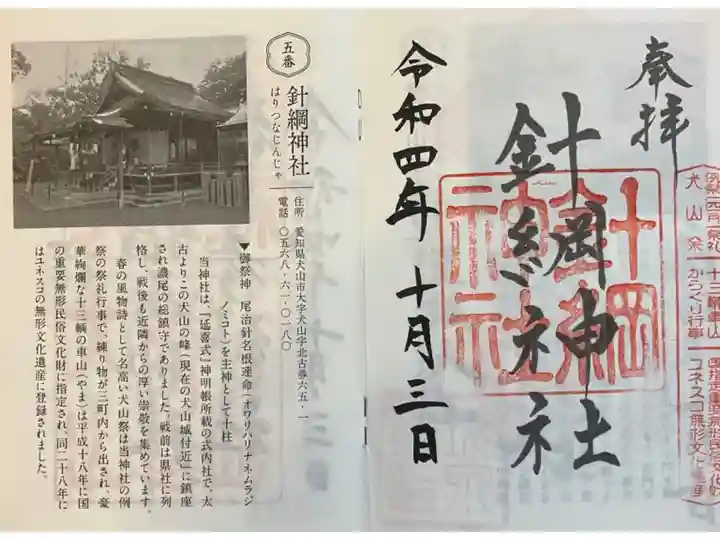 奉拝
針綱神社
令和四年十月三日
針綱神社
犬山祭
十三輌車山
からくり行事
ユネスコ無形文化
五番
針綱神社
はりつなじんじゃ
住所 愛知県犬山市大字犬山字北古券六五‐一
電話 〇五六八‐六一‐〇一八〇
▼御祭神 尾治針名根連命(オワリハリナネムラジ
ノミコト)を主神として十柱
当神社は、『延喜式』神明帳所載の式内社で、太
古よりこの犬山の峰(現在の犬山城付近)に鎮座
され濃尾の総鎮守でありました。戦前は県社に列
格し、戦後も近隣からの厚い崇敬を集めています。
春の風物詩として名高い犬山祭は当神社の例
祭の祭礼行事で、練り物が三町内から出され、豪
華絢爛な十三輌の車山(やま)は平成十八年に国
の重要無形民俗文化財に指定され、同二十八年に
はユネスコの無形文化遺産に登録されました。